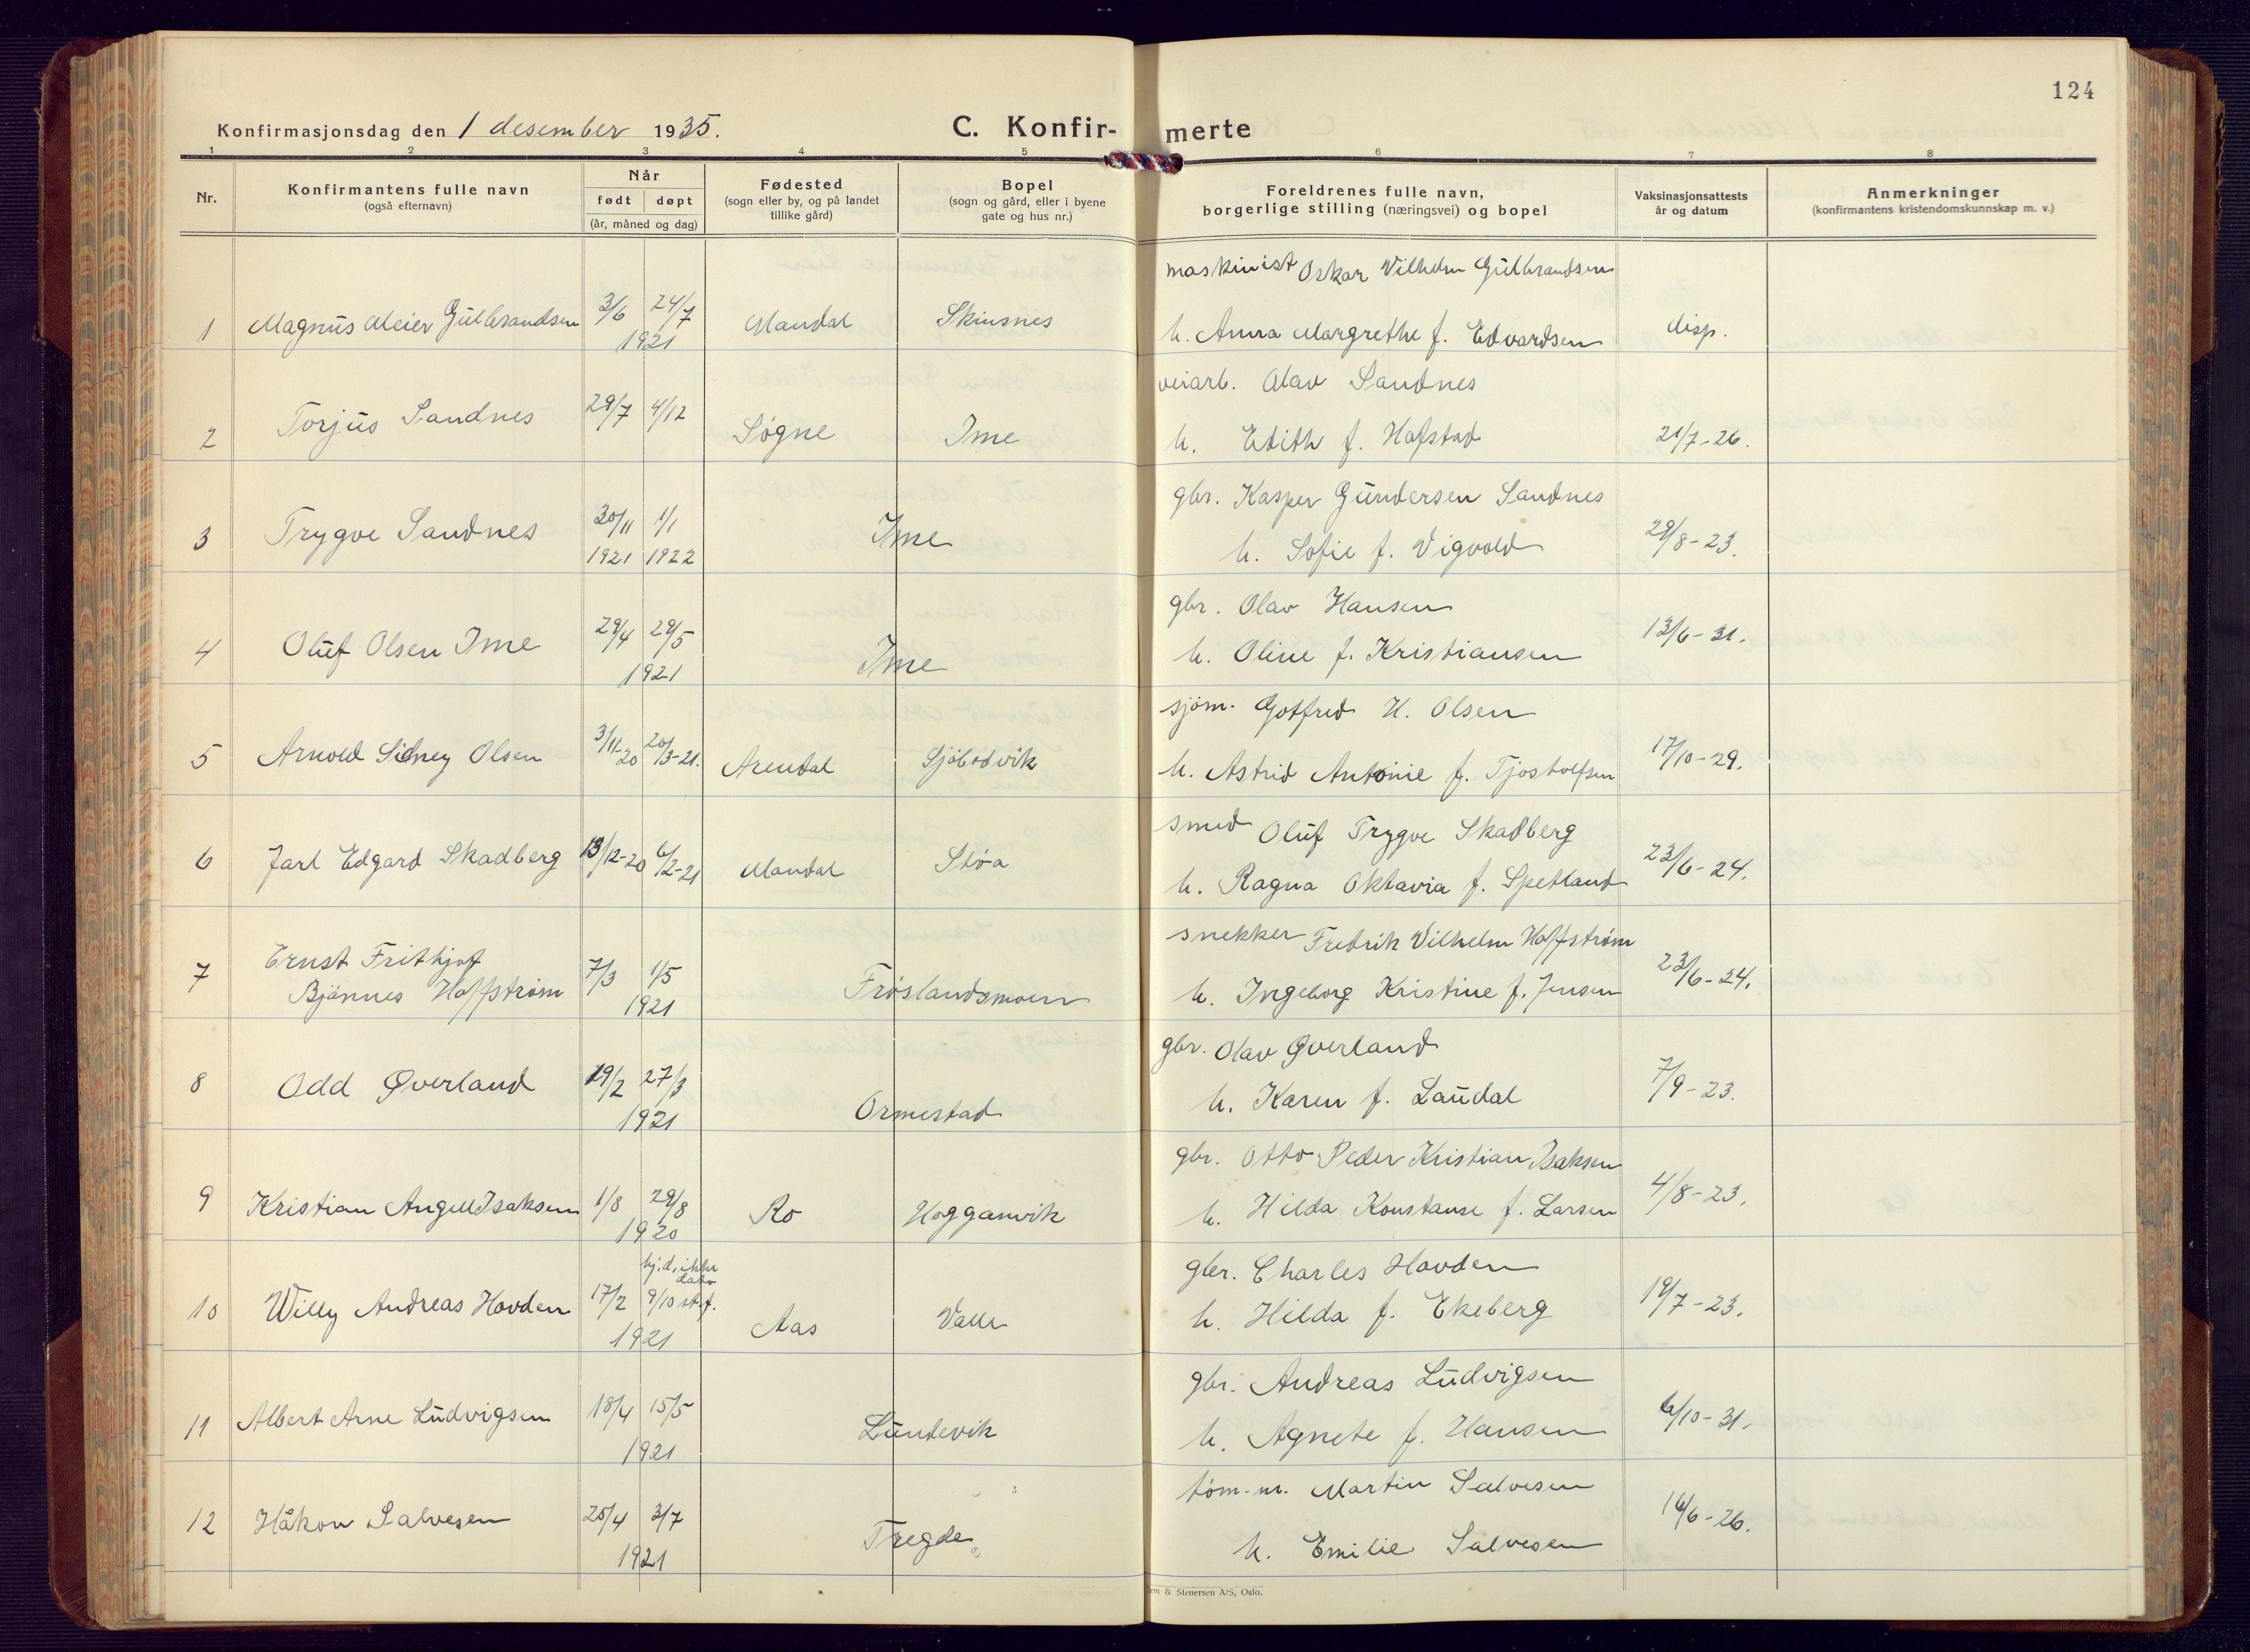 124
Konfirmasjonsdag den 1 desember 1935.
C. Konfir- merte
1 2 3 4 5 6 7 8
Nr.
Konfirmantens fulle navn
(også efternavn)
Når
født døpt
(år, måned og dag)
Fødested
(sogn eller by, og på landet
tillike gård)
Bopel
(sogn og gård, eller i byene
gate og hus nr.)
Foreldrenes fulle navn,
borgerlige stilling (næringsvei) og bopel
Vaksinasjonsattests
år og datum
Anmerkninger
(konfirmantens kristendomskunnskap m. v.)
maskinist Oskar Vilhelm Gulbrandsen
1 Magnus Meier Gulbrandsen 3/6 24/7 Mandal Skinsnes
1921
h. Anna Margrethe f. Edvardsen disp.
veiarb. Olav Sandnes
2 Torjus Sandnes 29/7 4/12 Søgne Ime
h. Edith f. Hafstad 21/7-26.
gbr. Kasper Gundersen Sandnes
3 Trygve Sandnes 30/11 1/1 Ime
1921 1922
h. Sofie f. Vigvold 29/8-23.
gbr. Olav Hansen
4 Oluf Olsen Ime 29/4 29/5 Ime
1921
h. Oline f. Kristiansen 13/6-31.
sjøm. Gotfred H. Olsen
5 Arnold Sidney Olsen 3/11-20 20/3-21. Arendal Sjöbodvik
h. Astrid Antonie f. Tjostolfsen 17/10-29.
smed Oluf Trygve Skadberg
6 Jarl Edgard Skadberg 13/12-20 6/2-21 Mandal Støa
h. Ragna Oktavia f. Spetland 23/6-24.
snekker Fredrik Vilhelm Hoffstrøm
7 Ernst Frithjof
Bjännes Hoffstrøm 7/3 1/5 Frøslandsmoen
1921
h. Ingeborg Kristine f. Jensen 23/6-24.
gbr. Olav Øverland
8 Odd Øverland 19/2 27/3 Ormestad
1921
h. Karen f. Laudal 7/9-23.
gbr. Otto Peder Kristian Isaksen
9 Kristian Angell Isaksen 1/8 29/8 Ro Hogganvik
1920
h. Hilda Konstanse f. Larsen 4/8-23.
hj.d. ikke
dato
gbr. Charles Hovden
10 Willy Andreas Hovden 17/2 9/10 st.f. Aas Valle
1921
h. Hilda f. Ekeberg 19/7-23.
gbr. Andreas Ludvigsen
11 Albert Arne Ludvigsen 18/4 15/5 Lundevik
1921
h. Agnete f. Hansen 6/10-31.
tøm.m. Martin Salvesen
12 Håkon Salvesen 25/4 3/7 Tregde
1921
h. Emilie Salvesen 16/6-26.
& Stenersen A/S, Oslo.